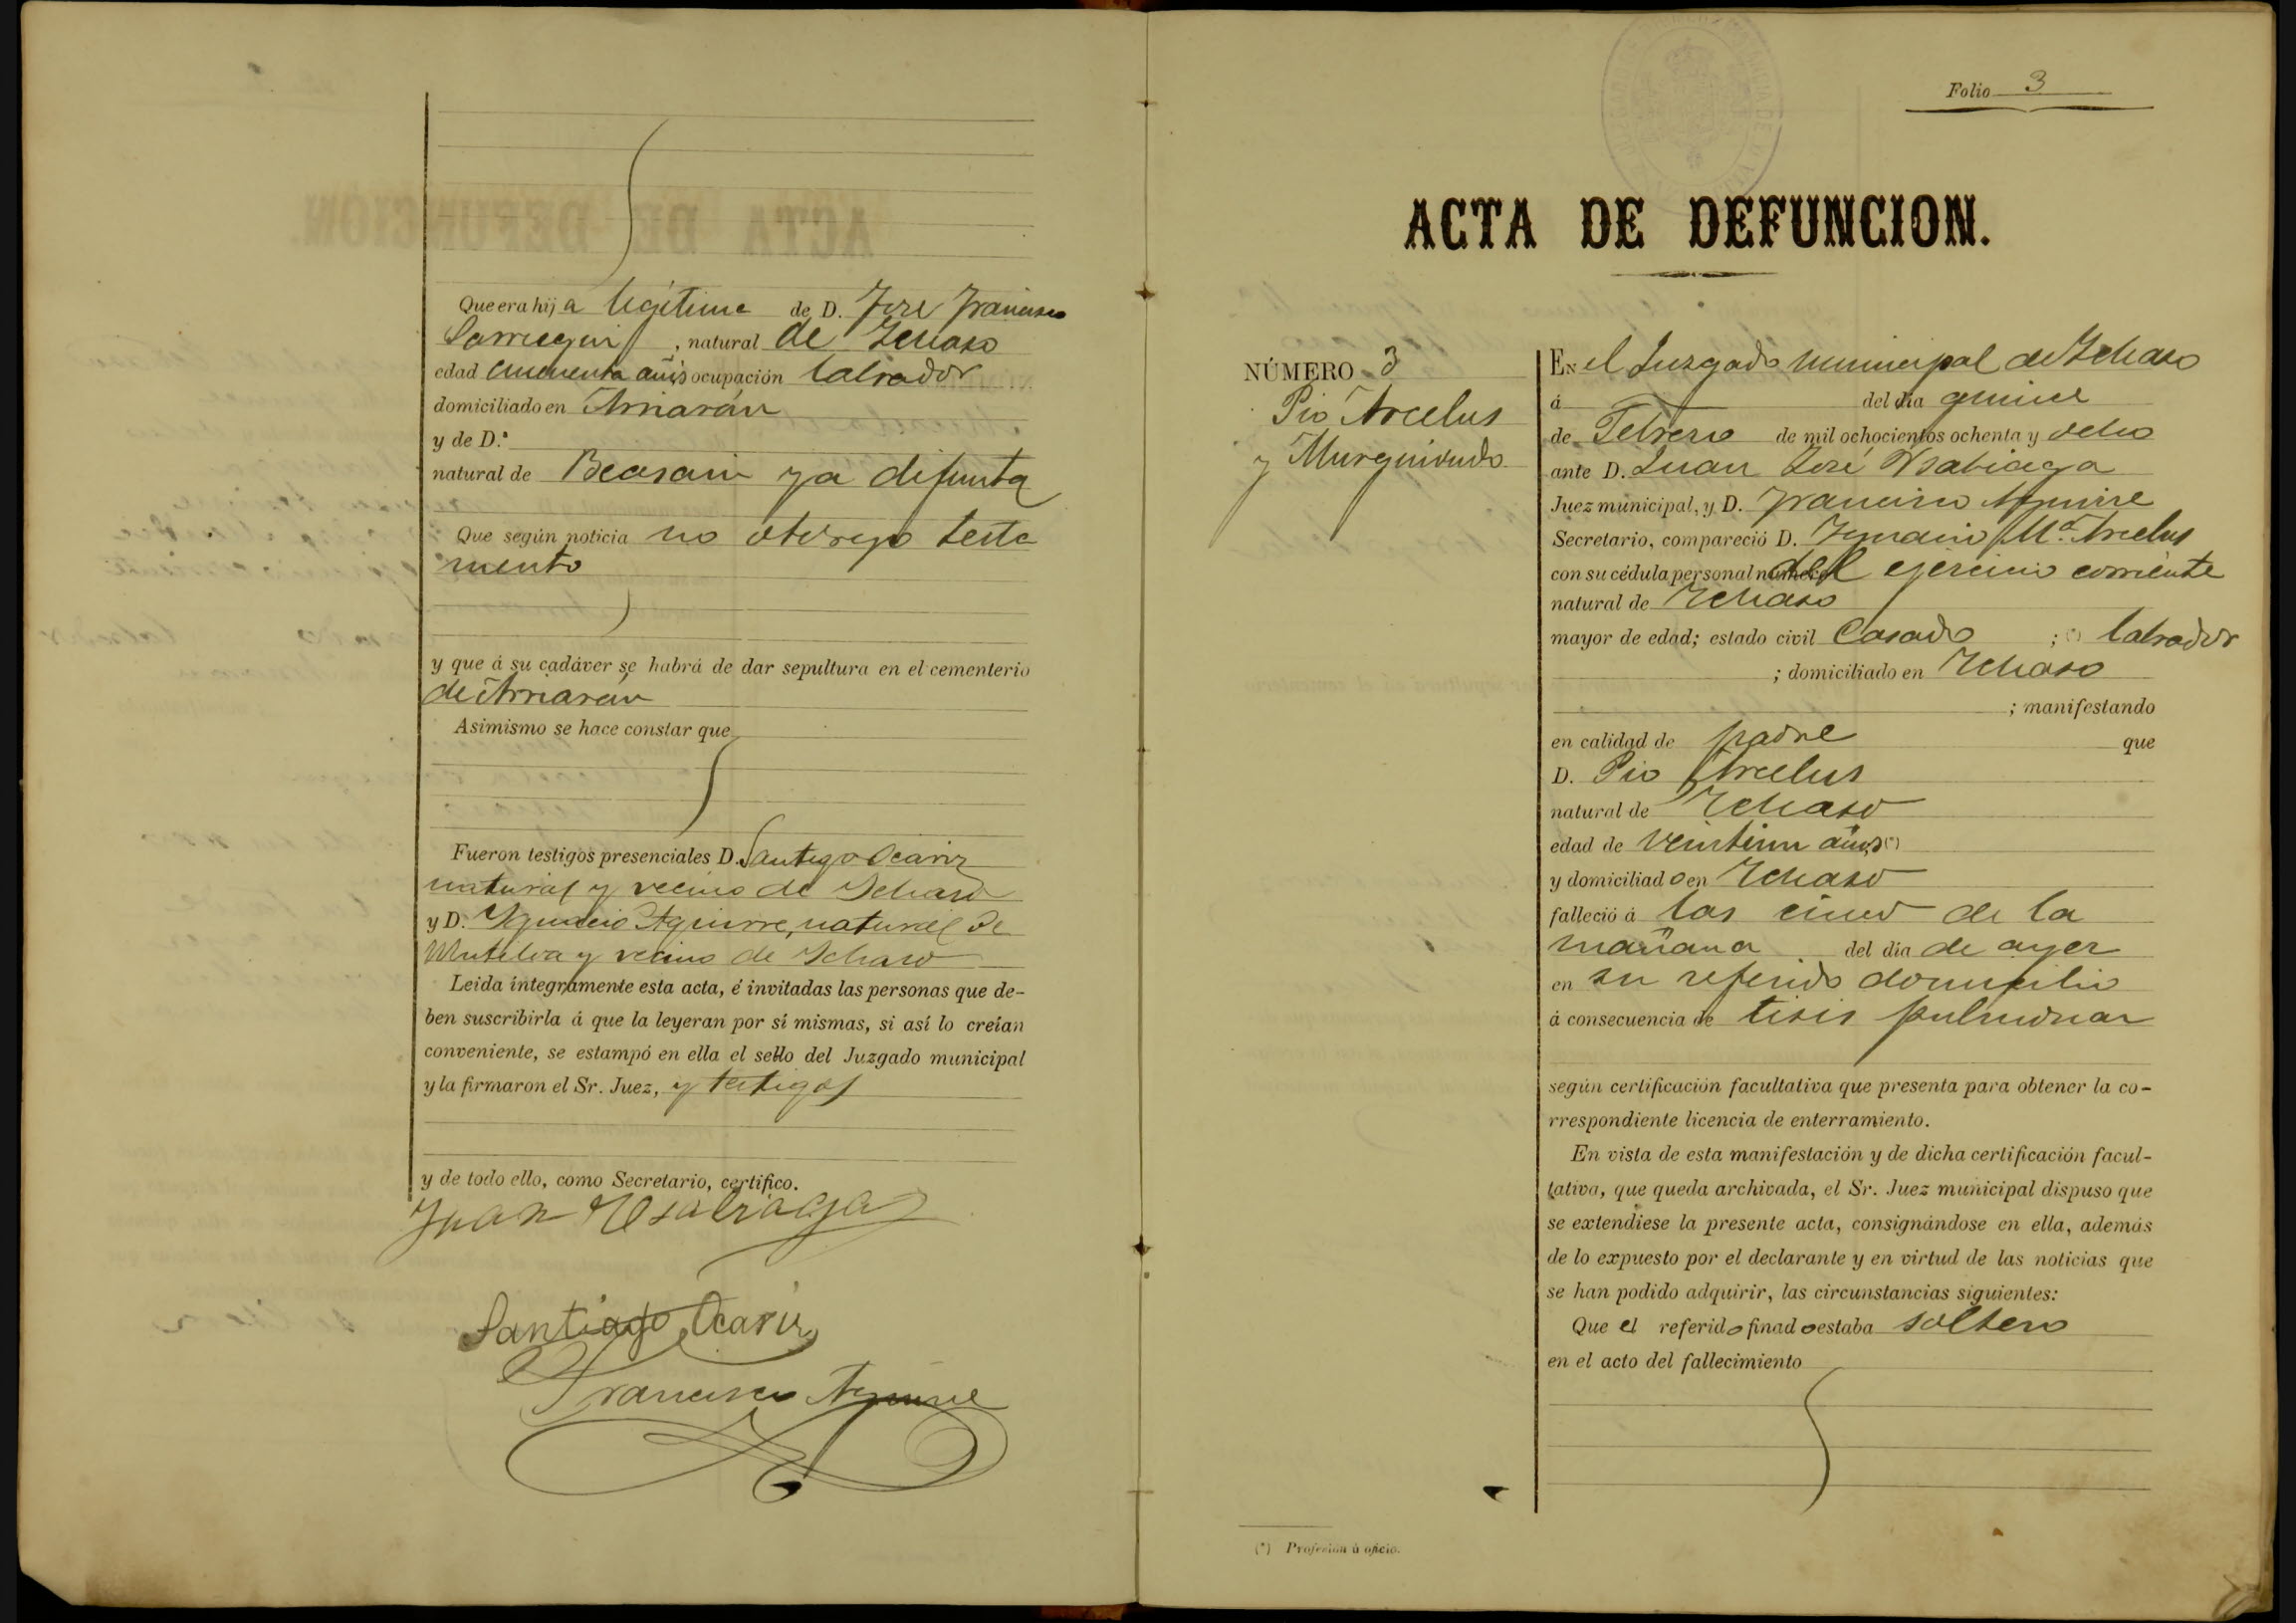 Que era hija legitima de D. José Francisco
Sarriegui, natural de Ichaso
edad cincuenta años ocupación labrador
domiciliado en Arriarán
y de D.ª
natural de Beasain ya difunta
Que según noticia no otorgó testa
mento
y que á su cadáver se habrá de dar sepultura en el cementerio
de Arriarán
Asimismo se hace constar que
Fueron testigos presenciales D. Santiago Ocariz
natural y vecino de Ichaso
y D. Ignacio Aguirre, natural de
Mutiloa y vecino de Ichaso
Leida íntegramente esta acta, é invitadas las personas que de-
ben suscribirla á que la leyeran por sí mismas, si así lo creían
conveniente, se estampó en ella el sello del Juzgado municipal
y la firmaron el Sr. Juez, y testigos
y de todo ello, como Secretario, certifico.
Juan Ysabiaga
Santiago Ocariz
Francisco Aguirre
Folio 3
ACTA DE DEFUNCION.
NÚMERO 3
Pio Arcelus
y Murguiondo
En el Juzgado municipal de Ichaso
á del dia quince
de Febrero de mil ochocientos ochenta y ocho
ante D. Juan José Ysabiaga
Juez municipal, y D. Francisco Aguirre
Secretario, compareció D. Ignacio Mª Arcelus
con su cédula personal número del ejercicio corriente
natural de Ichaso
mayor de edad; estado civil Casado ; (*) labrador
; domiciliado en Ichaso
; manifestando
en calidad de padre que
D. Pio Arcelus
natural de Ichaso
edad de veintiun años (*)
y domiciliado en Ichaso
falleció á las cinco de la
mañana del dia de ayer
en su referido domicilio
á consecuencia de tisis pulmonar
según certificación facultativa que presenta para obtener la co-
rrespondiente licencia de enterramiento.
En vista de esta manifestación y de dicha certificación facul-
tativa, que queda archivada, el Sr. Juez municipal dispuso que
se extendiese la presente acta, consignándose en ella, además
de lo expuesto por el declarante y en virtud de las noticias que
se han podido adquirir, las circunstancias siguientes:
Que el referido finado estaba soltero
en el acto del fallecimiento
(*) Profesión ú oficio.